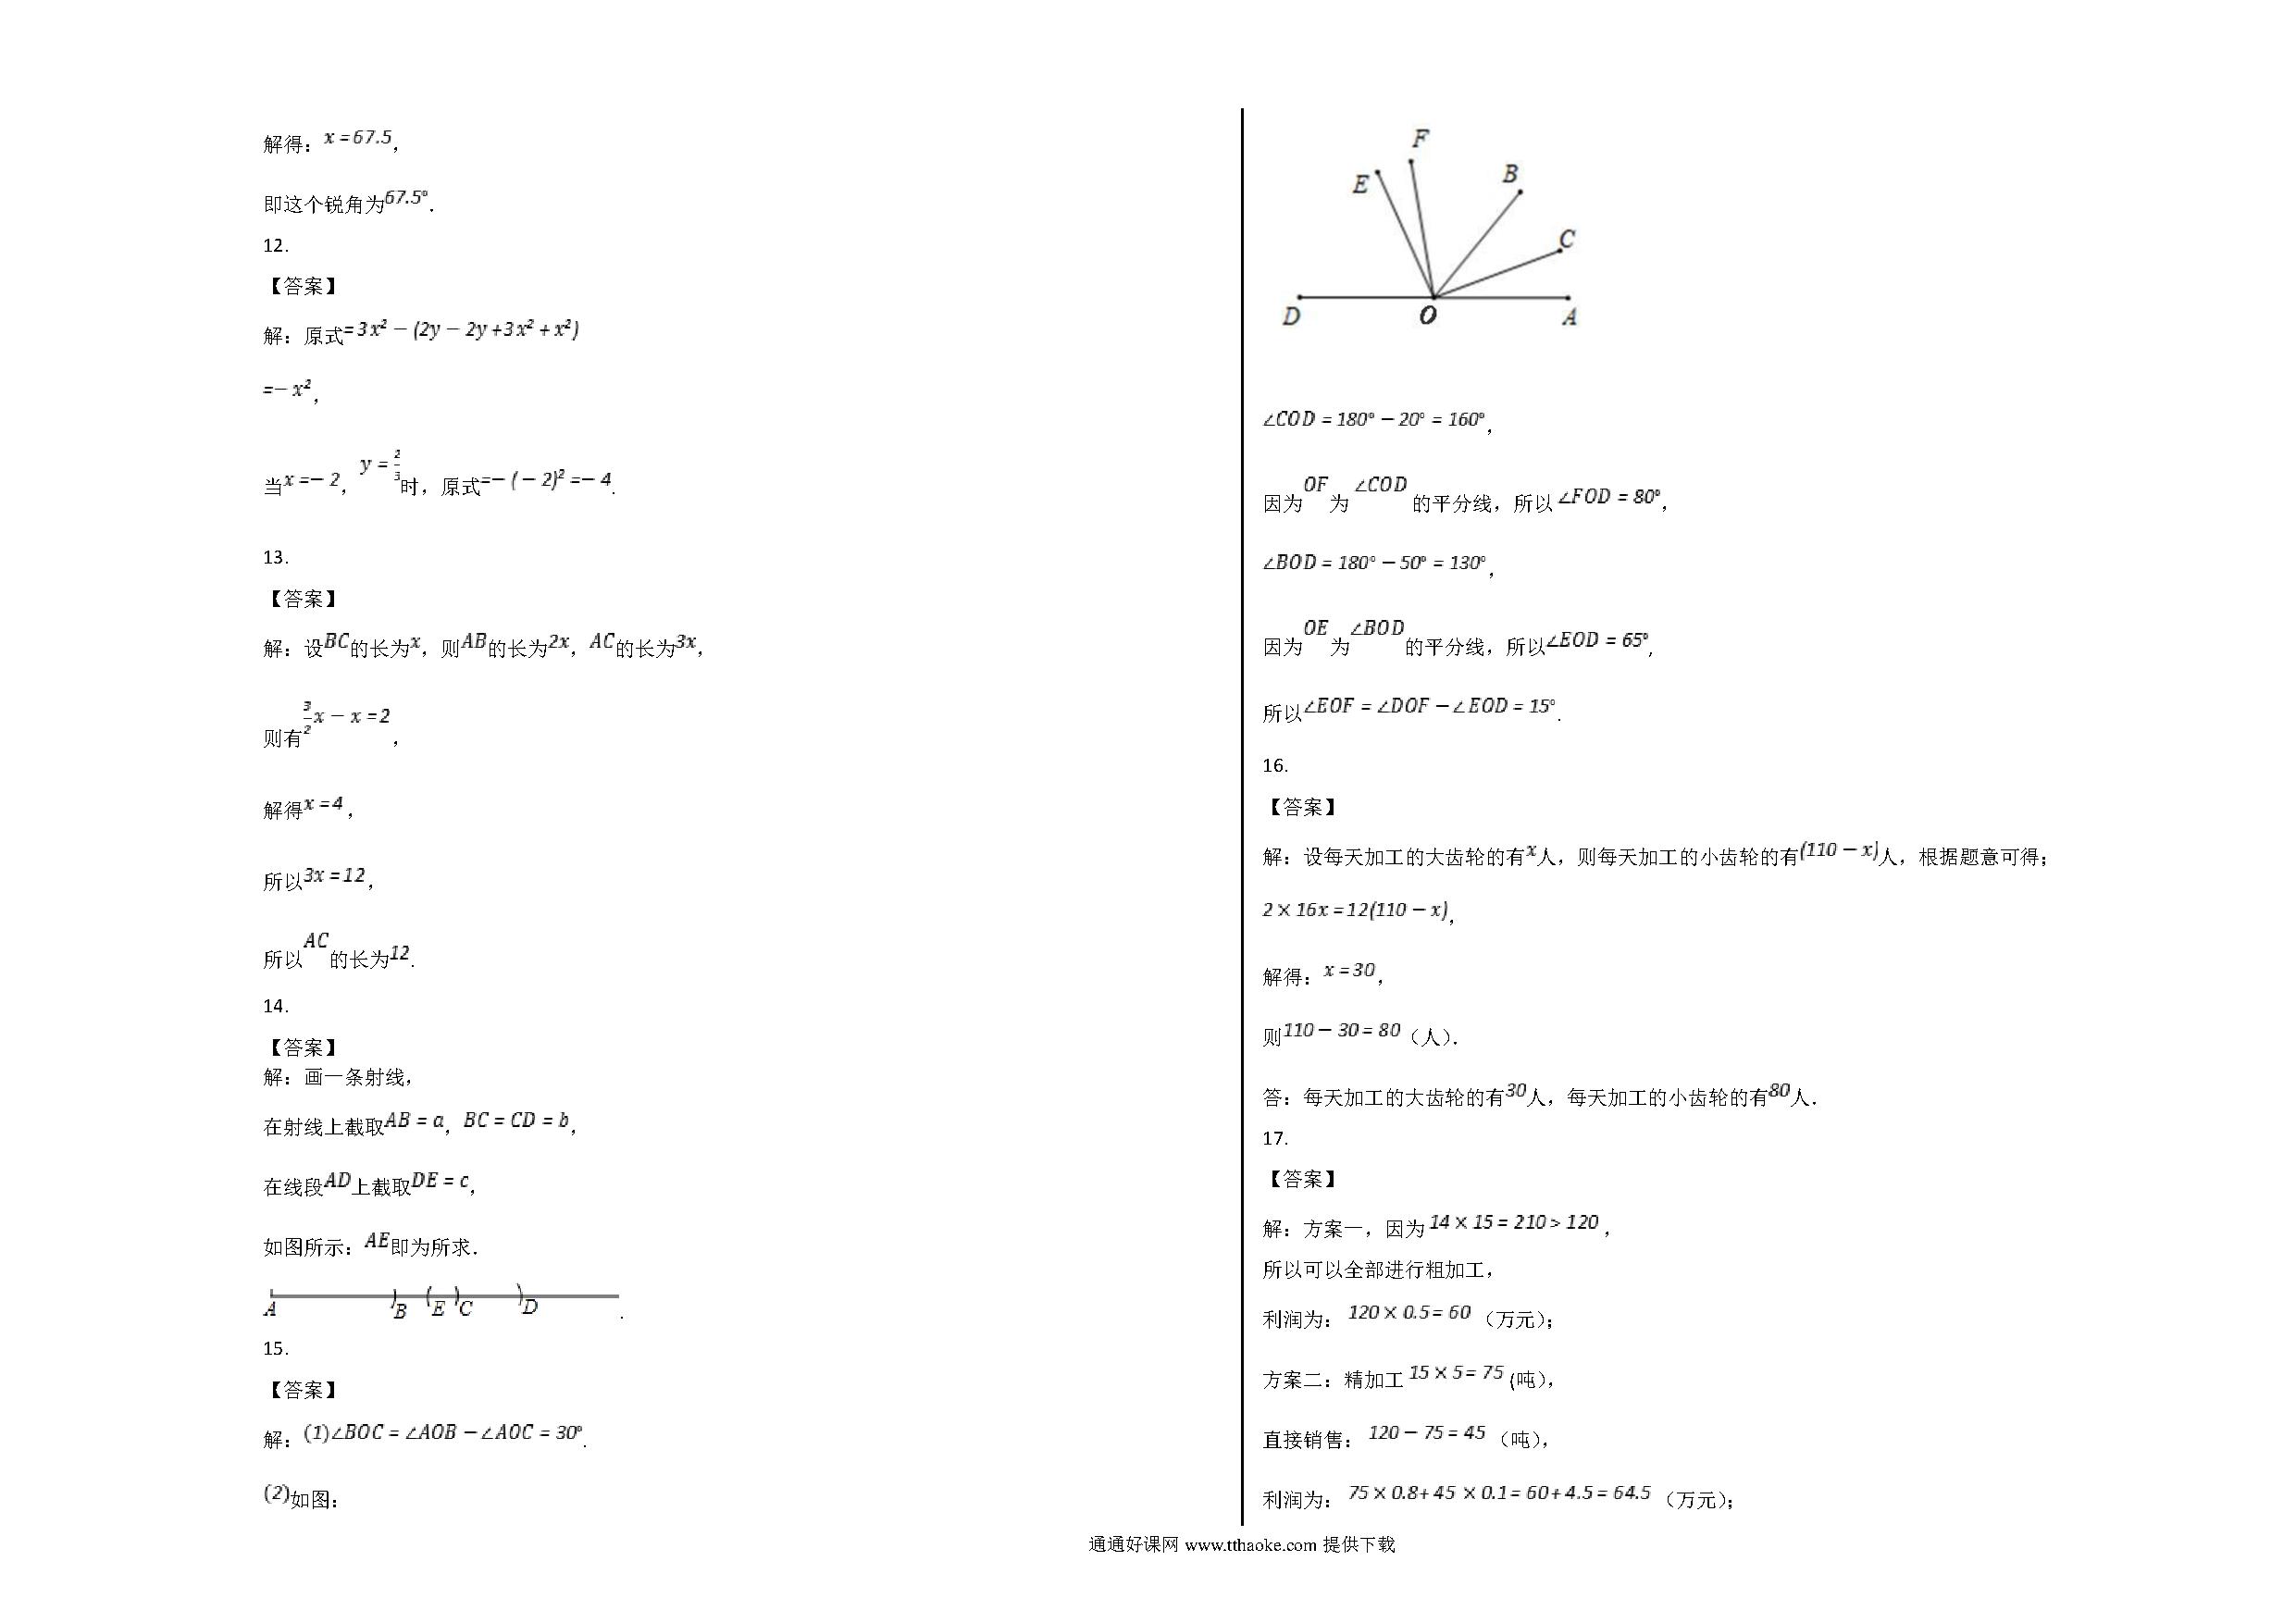 解得：x=67.5，
即这个锐角为67.5°．
12.
【答案】
解：原式=3x²−(2y−2y+3x²+x²)
=−x²，
当x=−2，y=2/3时，原式=−(−2)²=−4．
13.
【答案】
解：设BC的长为x，则AB的长为2x，AC的长为3x，
则有3/2x−x=2，
解得x=4，
所以3x=12，
所以AC的长为12．
14.
【答案】
解：画一条射线，
在射线上截取AB=a，BC=CD=b，
在线段AD上截取DE=c，
如图所示：AE即为所求．
A B E C D .
15.
【答案】
解：(1)∠BOC=∠AOB−∠AOC=30°．
(2)如图：
F
E
B
C
D O A
∠COD=180°−20°=160°，
因为OF为∠COD的平分线，所以∠FOD=80°，
∠BOD=180°−50°=130°，
因为OE为∠BOD的平分线，所以∠EOD=65°，
所以∠EOF=∠DOF−∠EOD=15°．
16.
【答案】
解：设每天加工的大齿轮的有x人，则每天加工的小齿轮的有(110−x)人，根据题意可得；
2×16x=12(110−x)，
解得：x=30，
则110−30=80（人）．
答：每天加工的大齿轮的有30人，每天加工的小齿轮的有80人．
17.
【答案】
解：方案一，因为14×15=210>120，
所以可以全部进行粗加工，
利润为：120×0.5=60（万元）；
方案二：精加工15×5=75(吨)，
直接销售：120−75=45（吨），
利润为：75×0.8+45×0.1=60+4.5=64.5（万元）；
通通好课网 www.tthaoke.com 提供下载